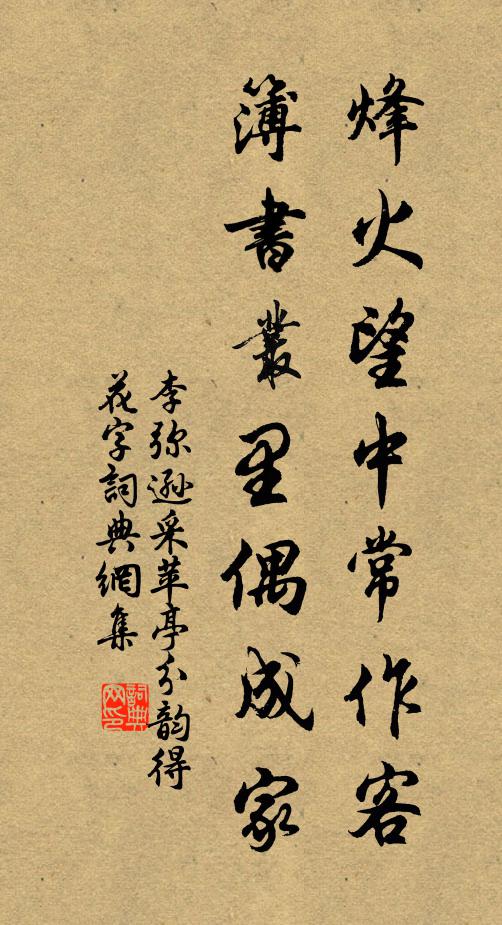 烽火望中常作客
簿書叢里偶成家
李弥遜采苹亭分韵得
花字詞典網集
詞典网印